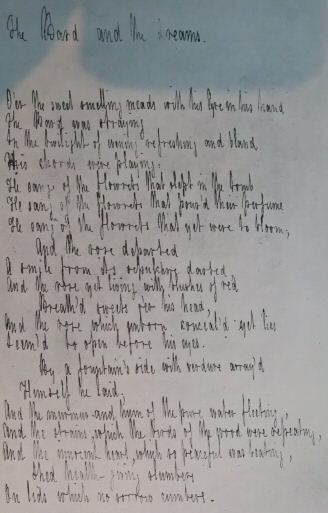 The Bard and the Dreams.
O'er the sweet smelling meads with his lyre in his hand
The Bard was straying
In the twilight of evening refreshing and bland
His chords were playing:
He sang of the flowrets that slept in the tomb
He sang of the flowrets that pour'd their perfume
He sang of the flowrets that yet were to bloom,
And the rose departed
A smile from its sepulchre darted
And the rose yet living with blushes of red
Breath'd sweets o'er his head,
And the rose which unborn conceal'd yet lies
Seem'd to open before his eyes.
By a fountain's side with verdure array'd
Himself he laid.
And the murmur and hum of the pure water fleeting,
And the strains, which the birds of the wood were repeating,
And the innocent heart, which so peaceful was beating,
Shed health-giving slumbers
On lids which no sorrow cumbers.